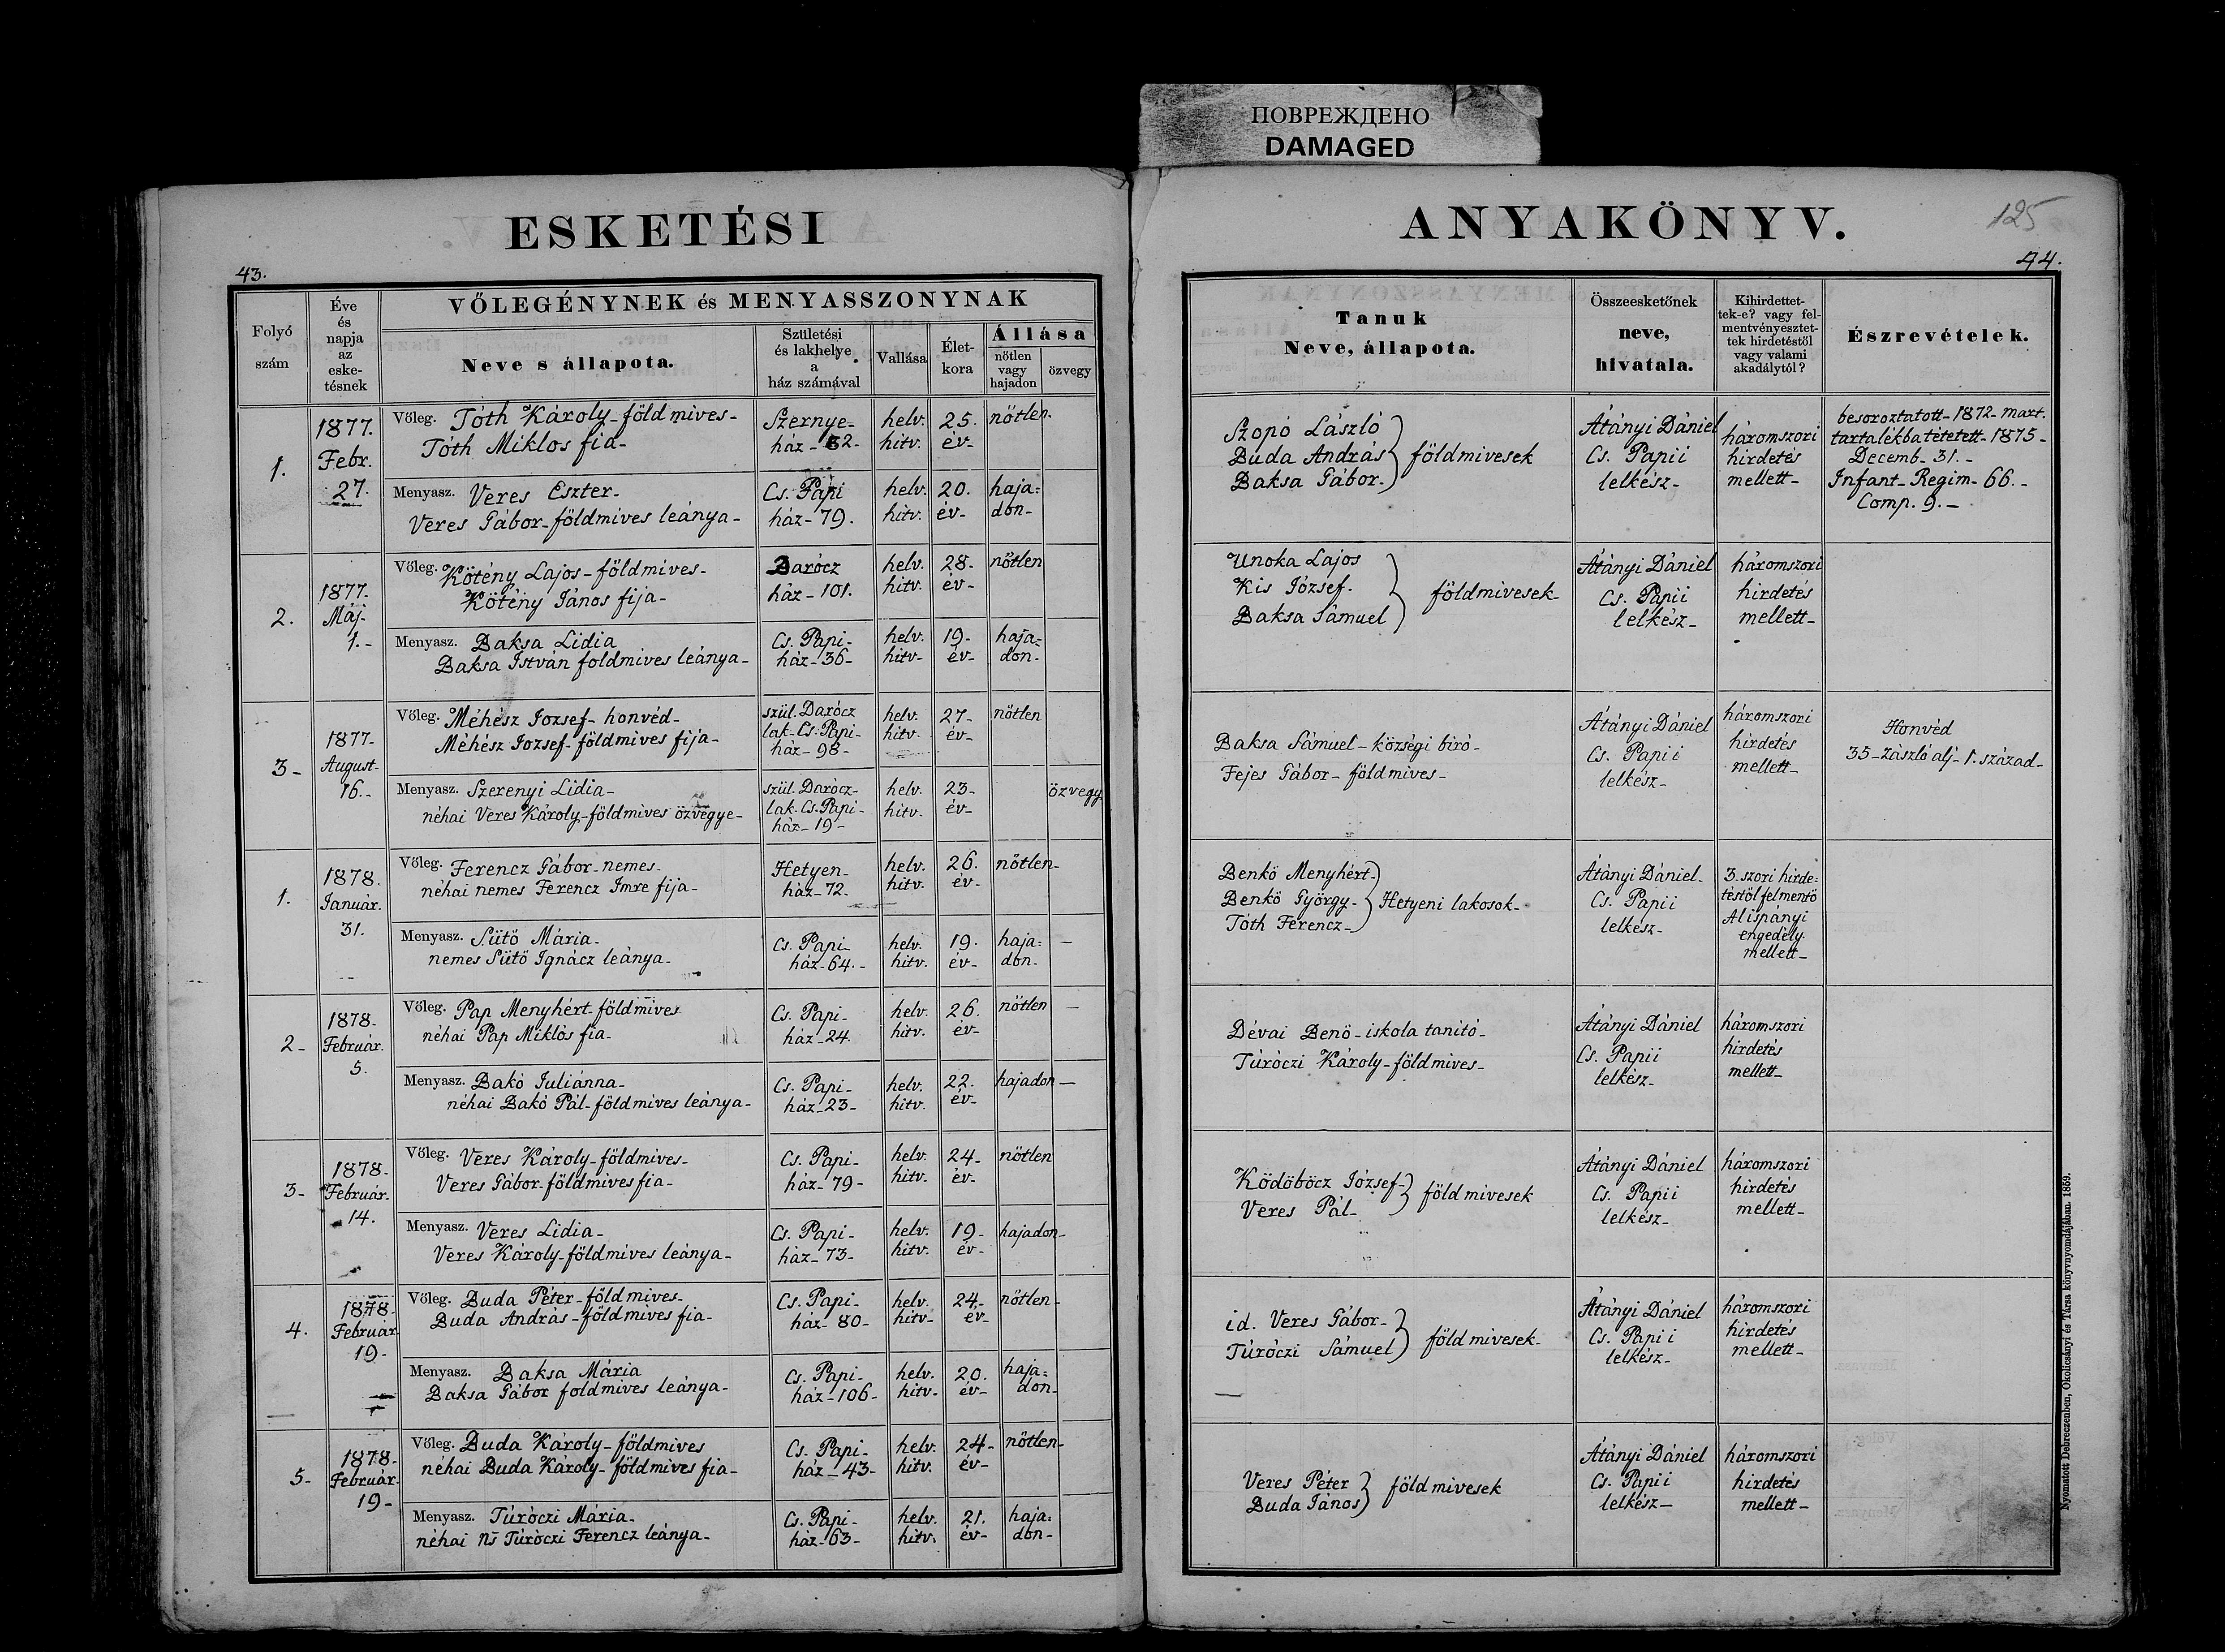 ПОВРЕЖДЕНО
DAMAGED
ESKETÉSI
43.
Folyó
szám
Éve
és
napja
az
eske-
tésnek
VŐLEGÉNYNEK és MENYASSZONYNAK
Neve s állapota.
Születési
és lakhelye
a
ház számával
Vallása
Élet-
kora
Állása
nőtlen
vagy
hajadon
özvegy
1.
1877.
Febr.
27.
Vőleg. Tóth Károly-földmives-
Tóth Miklos fia-
Szernye-
ház-
helv.
hitv.
25.
év-
nőtlen.
Menyasz. Veres Eszter-
Veres Gábor-földmives leánya-
Cs. Papi
ház-79.
helv.
hitv.
20.
év-
haja=
don-
2.
1877.
Máj.
1.-
Vőleg. Kötény Lajos-földmives-
Kötény János fija-
Darócz
ház-101.
helv.
hitv.
28-
év-
nőtlen
Menyasz. Baksa Lidia
Baksa István foldmives leánya-
Cs. Papi-
ház-36-
helv.
hitv-
19-
év-
haja=
don-
3-
1877-
August-
16.-
Vőleg. Méhész Iozsef-honvéd-
Méhész Iozsef-földmives fija-
szül. Darócz
lak-Cs. Papi-
ház-98-
helv.
hitv.
27-
év-
nőtlen
Menyasz. Szerenyi Lidia-
néhai Veres Károly-földmives özvegye-
szül. Darócz-
lak-Cs. Papi-
ház-19-
helv.
hitv.
23-
év-
özvegy
1.
1878.
Január.
31.
Vőleg. Ferencz Gábor-nemes-
néhai nemes Ferencz Imre fija-
Hetyen-
ház-72.
helv.
hitv.
26.
év-
nőtlen-
Menyasz. Sütö Mária-
nemes Sütö Ignácz leánya-
Cs. Papi-
ház-64.-
helv.
hitv.
19.
év-
haja=
don-
2-
1878-
Február.
5.
Vőleg. Pap Menyhért-földmives
néhai Pap Miklós fia-
Cs. Papi-
ház-24.
helv.
hitv.
26.
év-
nőtlen
Menyasz. Bakó Juliánna-
néhai Bakó Pál-földmives leánya-
Cs. Papi-
ház-23-
helv.
hitv.
22.
év-
hajadon-
3-
1878-
Február.
14.
Vőleg. Veres Károly-földmives-
Veres Gábor-földmives fia-
Cs. Papi-
ház-79-
helv.
hitv.
24-
év-
nőtlen
Menyasz. Veres Lidia-
Veres Károly-földmives leánya-
Cs. Papi-
ház-73-
helv.
hitv.
19-
év-
hajadon-
4.
1878-
Február
19-
Vőleg. Buda Péter-földmives-
Buda András-földmives fia-
Cs. Papi-
ház-80-
helv.
hitv-
24-
év-
nőtlen-
Menyasz. Baksa Mária
Baksa Gábor foldmives leánya-
Cs. Papi-
ház-106-
helv.
hitv-
20.
év-
haja=
don-
5-
1878-
Február-
19-
Vőleg. Buda Károly-földmives
néhai Buda Károly-földmives fia-
Cs. Papi-
ház-43-
helv.
hitv.
24-
év-
nőtlen-
Menyasz. Túróczi Mária-
néhai Ns Túróczi Ferencz leánya-
Cs. Papi-
ház-63-
helv.
hitv.
21.
év-
haja=
don-
ANYAKÖNYV.
125
44.
Tanuk
Neve, állapota.
Összeesketőnek
neve,
hivatala.
Kihirdettet-
tek-e? vagy fel-
mentvényesztet-
tek hirdetéstöl
vagy valami
akadálytól?
Észrevételek.
Szopó László
Buda András
Baksa Gábor-
földmivesek
Átányi Dániel
Cs. Papii
lelkész-
háromszori
hirdetés
mellett-
besoroztatott-1872-mart.
tartalékba tétetett-1875-
Decemb-31.-
Infant-Regim-66.-
Comp. 9.-
Unoka Lajos
Kis József-
Baksa Sámuel
földmivesek-
Átányi Dániel
Cs. Papii
lelkész-
háromszori
hirdetés
mellett-
Baksa Sámuel-községi biró-
Fejes Gábor-földmives-
Átányi Dániel
Cs. Papii
lelkész-
háromszori
hirdetés
mellett-
Honvéd
35-Zászló alj-1. század-
Benkö Menyhért-
Benkö György-
Tóth Ferencz-
Hetyeni lakosok-
Átányi Dániel-
Cs. Papii
lelkész-
3. szori hirde=
téstöl felmentö
Alispányi
engedély
mellett-
Dévai Benö-iskola tanitó-
Túróczi Károly-földmives-
Átányi Dániel
Cs. Papii
lelkész-
háromszori
hirdetés
mellett-
Ködöböcz József-
Veres Pál-
földmivesek
Átányi Dániel
Cs. Papii
lelkész-
háromszori
hirdetés
mellett-
id. Veres Gábor-
Túróczi Sámuel
földmivesek-
Átányi Dániel
Cs. Papii
lelkész-
háromszori
hirdetés
mellett-
Veres Péter
Buda János
földmivesek
Átányi Dániel
Cs. Papii
lelkész-
háromszori
hirdetés
mellett-
Nyomatott Debreczenben, Okolicsányi és Társa könyvnyomdájában. 1859.